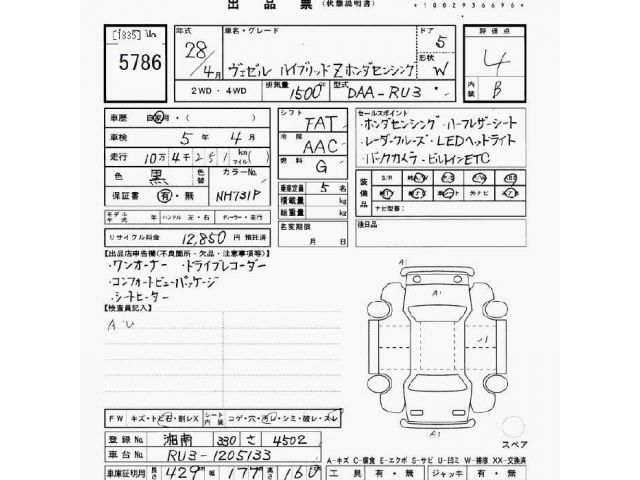 出品票 (状態説明書)
*1002936696*
[1835] Un
5786
年式 車名・グレード ドア 5 評価点
28/4月 ヴェゼル ハイブリッドZホンダセンシング 形状 W 4
2WD・4WD 排気量 1500cc 型式 DAA-RU3 内装 B
車歴 自家用・( )
車検 5年 4月
走行 10万4千251 (km/マイル)
色 黒 色替 カラーNo. NH731P
保証書 有・無
モデル年式 年 ハンドル 左・右 ディーラー・並行
リサイクル料金 12,850円 預託済
シフト FAT
冷房 AAC
燃料 G
乗車定員 5名
積載量 kg
総重量 kg
名変期限
月 日
セールスポイント
・ホンダセンシング ・ハーフレザーシート
・レーダークルーズ ・LEDヘッドライト
・バックカメラ ・ビルトインETC
装備品 S/R 純A/W P/S P/W ABS
純TV 革シート 外ナビ エアB
ナビ型番:
後日品
【出品店申告欄(不良箇所・欠品・注意事項等)】
・ワンオーナー ・ドライブレコーダー
・コンフォートビューパッケージ
・シートヒーター
【検査員記入】
AU
A1
1
A1
スペア
FW キズ・トビ石・割レX シート内装 コゲ・穴・汚レ・シミ・破レ・スレ
登録No. 湘南 330 さ 4502
車台No. RU3-1205133
A-キズ C-腐食 E-エクボ S-サビ U-凹ミ W-補修 XX-交換済
車庫証明用 長さ 429 幅 177 高さ 160
工具 有・無 ジャッキ 有・無